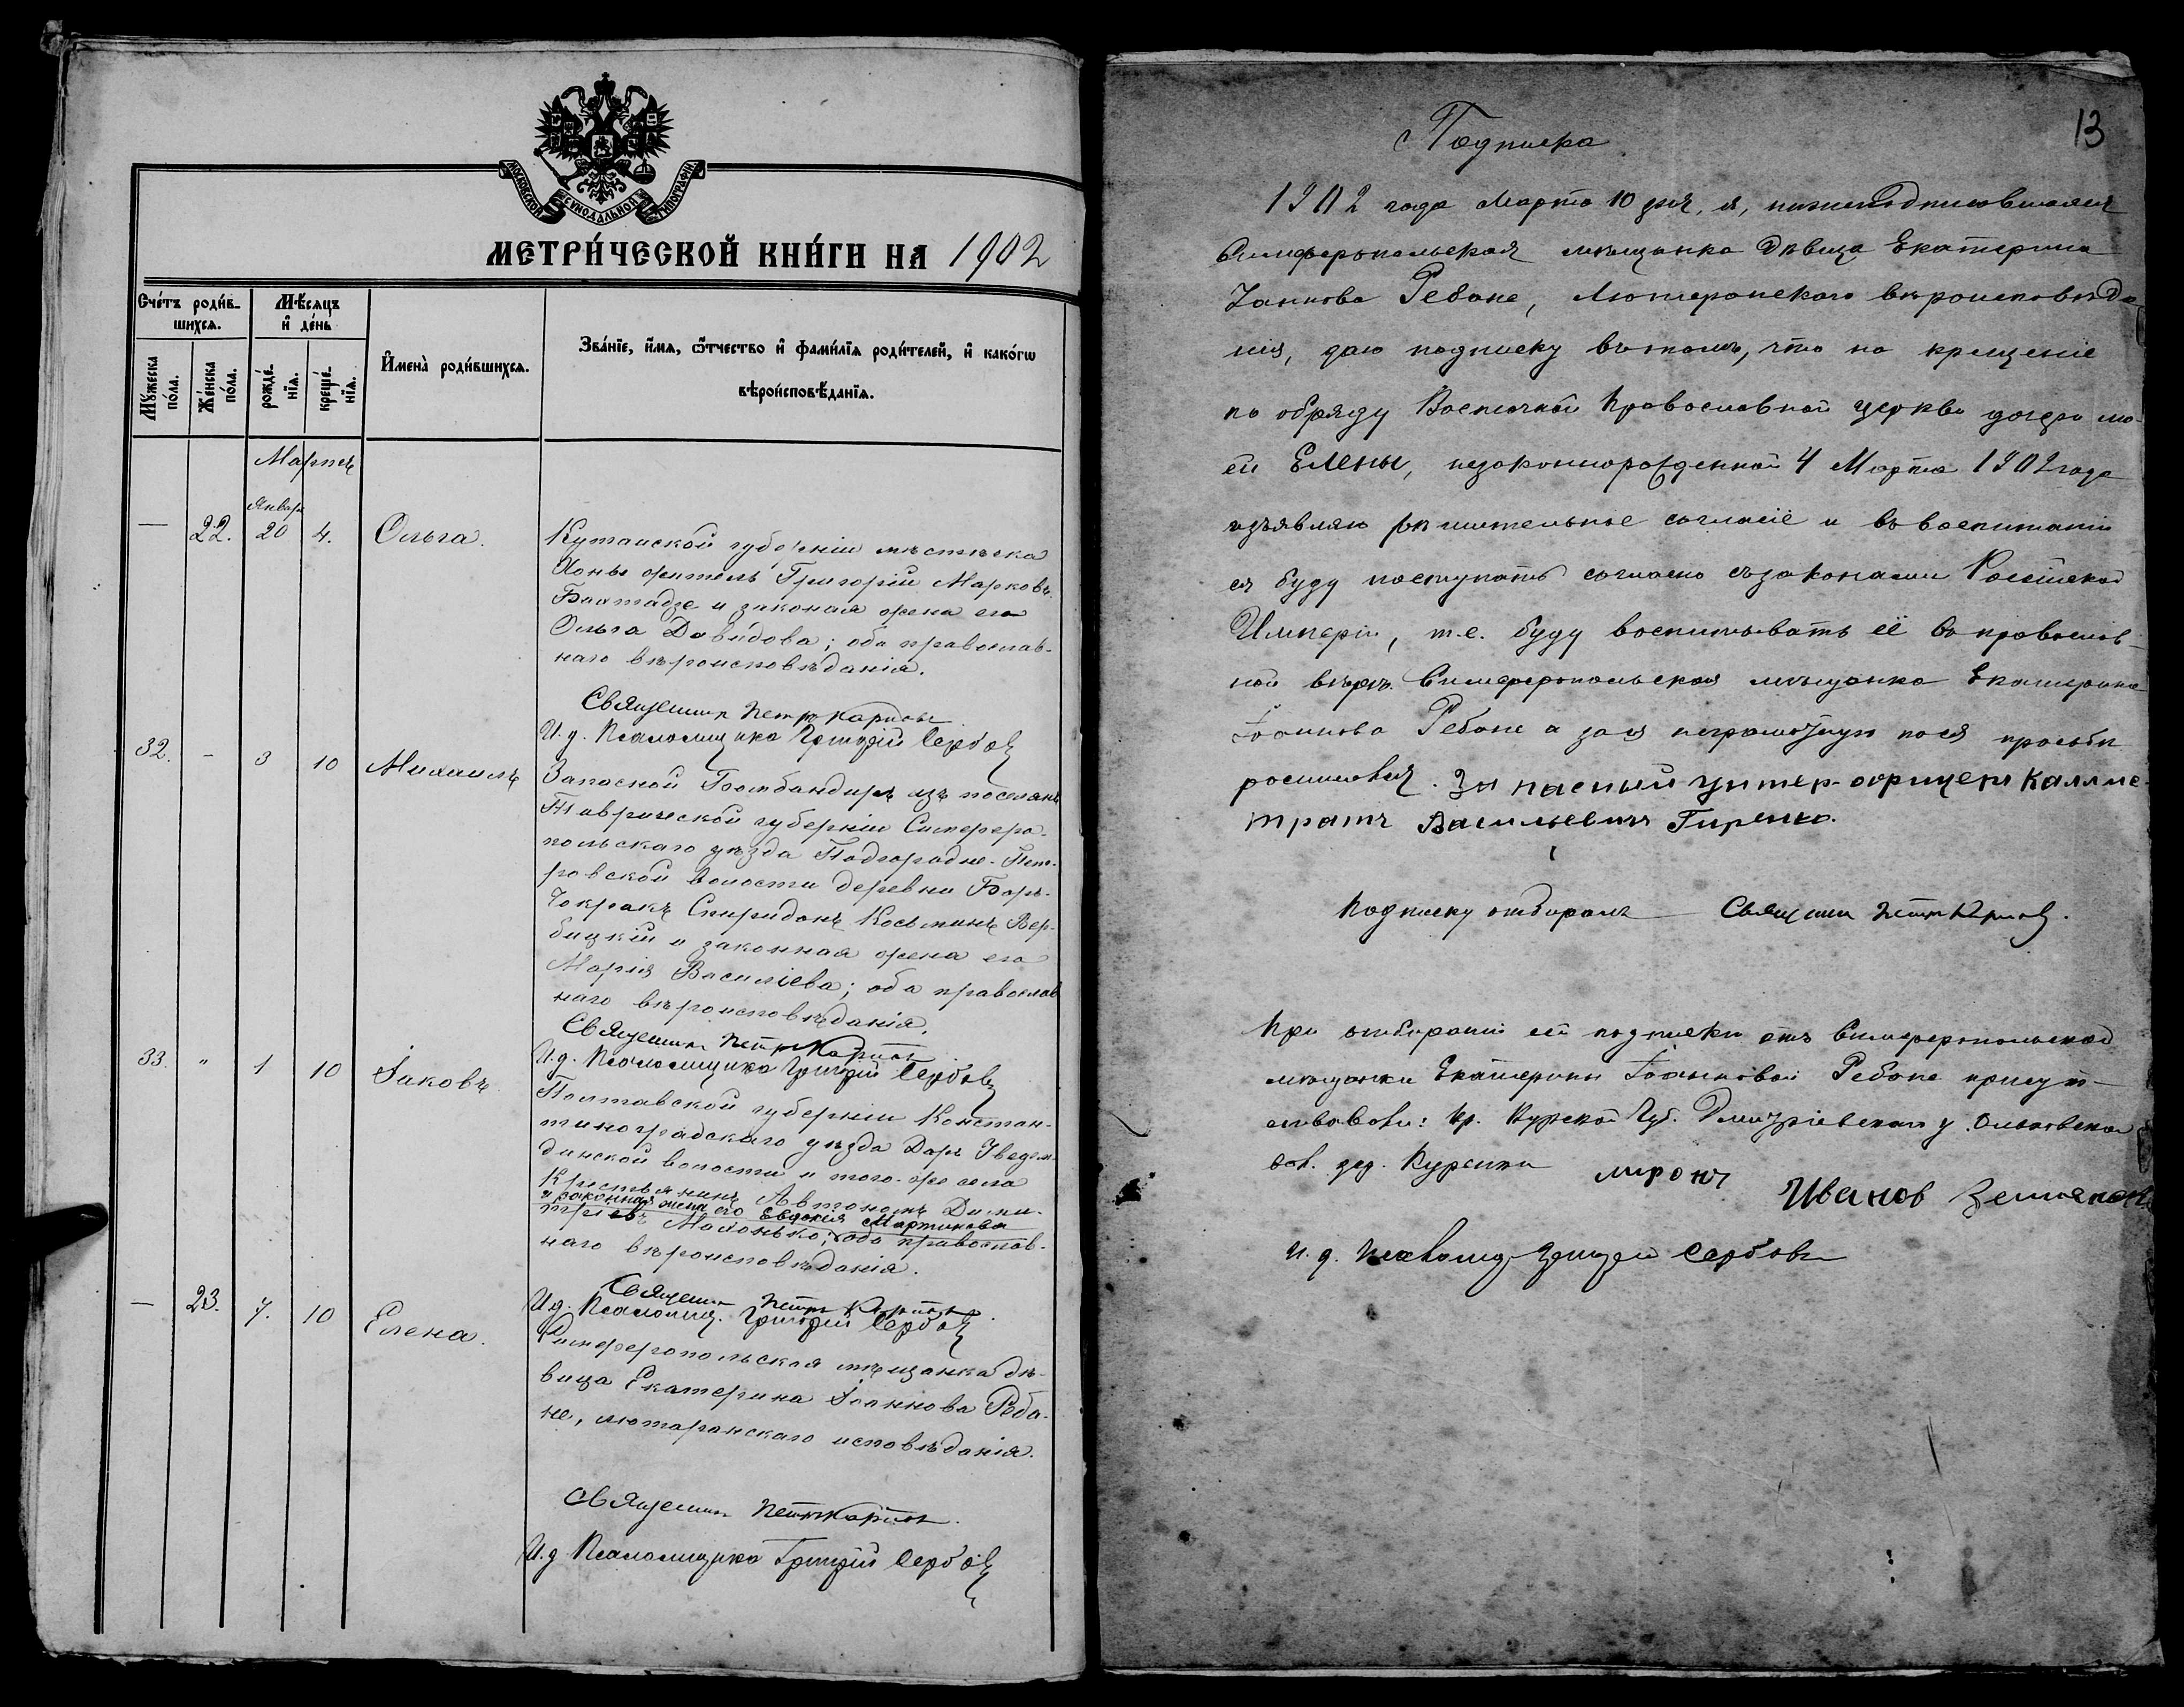 МОСКОВСКОЙ СѴНОДАЛЬНОЙ ТИПОГРАФІИ
МЕТРИ́ЧЕСКОЙ КНИ́ГИ НА 1902
Сче́тъ роди́в-
шихсѧ.
Мѣ́сѧцъ
и҆ де́нь
Мꙋ́жеска
по́ла.
Же́нска
по́ла.
рожде́-
нїѧ.
креще́-
нїѧ.
И҆мена̀ роди́вшихсѧ.
Зва́нїе, и҆́мѧ, ѻ҆́тчество и҆ фами́лїѧ роди́телей, и҆ како́гѡ
вѣроисповѣ́данїѧ.
Мартъ
Январ.
— 22. 20 4. Ольга.
Кутаиской губерніи мѣстечка
Хони житель Григорій Марковъ
Бахтадзе и законая жена его
Ольга Давидова; оба православ-
наго вѣроисповѣданія.
Священник Петр Карпов
И.д. Псаломщика Григорій Сербов
32. - 3 10 Михаилъ
Запасной Бомбандиръ изъ поселянъ
Таврической губерніи Симферо-
польскаго уѣзда Подгородне-Пет-
ровской волости деревни Боръ-
Чокракъ Спиридонъ Косьминъ Вер-
бицкій и законная жена его
Марія Василіева; оба православ
наго вѣроисповѣданія.
Священник Петр Карпов
И.д. Псаломщика Григорій Сербов
33. " 1 10 Іаковъ
Полтавской губерніи Констан-
тиноградскаго уѣзда Даръ
динской волости и того-же села
Крестьянинъ Автономъ Дими-
и законная жена его Евдокія Мартинова
тріевъ Махонько; оба православ-
наго вѣроисповѣданія.
Священник Петр Карпов
И.д. Псаломщ. Григорій Сербов
— 23. 10 Елена.
Симферопольская мѣщанка дѣ-
вица Екатерина Іоаннова Реба-
не, лютаранскаго исповѣданія.
Священник Петр Карпов.
И.д Псаломщика Григорій Сербов
13
Подписка
1902 года Марта 10 дня, я, нижеподписавшаяся
Симферопольская мѣщанка дѣвица Екатерина
Іаннова Ребане, Лютеранскаго вѣроисповѣда-
нія, даю подписку въ томъ, что на крещеніе
по обряду Восточной Православной церкви дочери мо-
ей Елены, незаконнорожденной 4 Марта 1902 года
изъявляю рѣшительное согласіе и въ воспитаніи
ея буду поступать согласно съ законами Россійской
Имперіи, т.е. буду воспитывать её въ православ-
ной вѣрѣ. Симферопольская мѣщанка Екатерина
Іоаннова Ребане а за ея неграмотную по ея просьбѣ
росписовся. Запасный унтер-офицеръ Каллис-
тратъ Васильевичъ Гиренко.
Подписку отбиралъ Священник Петр Карпов.
При отбираніи сей подписки отъ Симферопольской
мѣщанки Екатерины Іоанновой Ребане присут-
ствовали: кр. Курской Губ. Дмитріевскаго у.
вол. дер. Миронъ Иванов
И.д. Псаломщ. Григорій Сербовъ